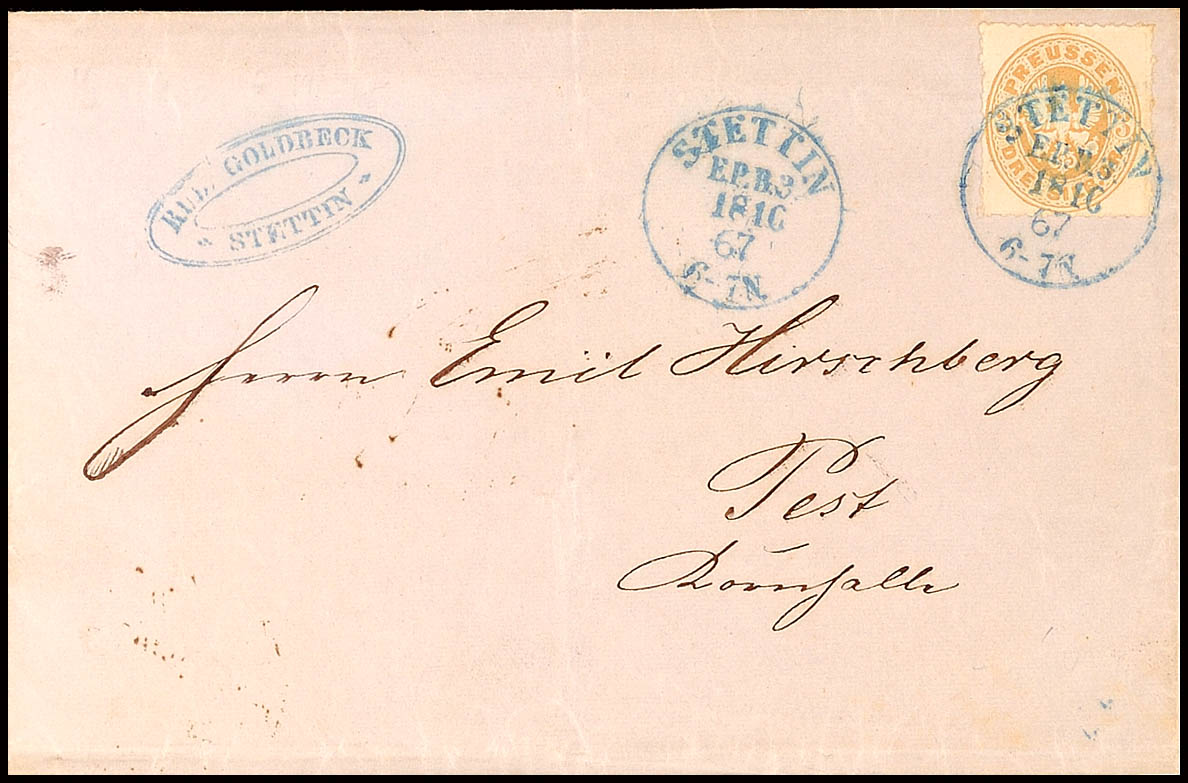 RUD. GOLDBECK
STETTIN
STETTIN
E.P.B.3.
18 10
67
6-7N.
PREUSSEN
DREI SILB. GR.
3
STETTIN
E.P.B.3.
18 10
67
6-7N.
Herrn Emil Hirschberg
Pest
Kornhalle